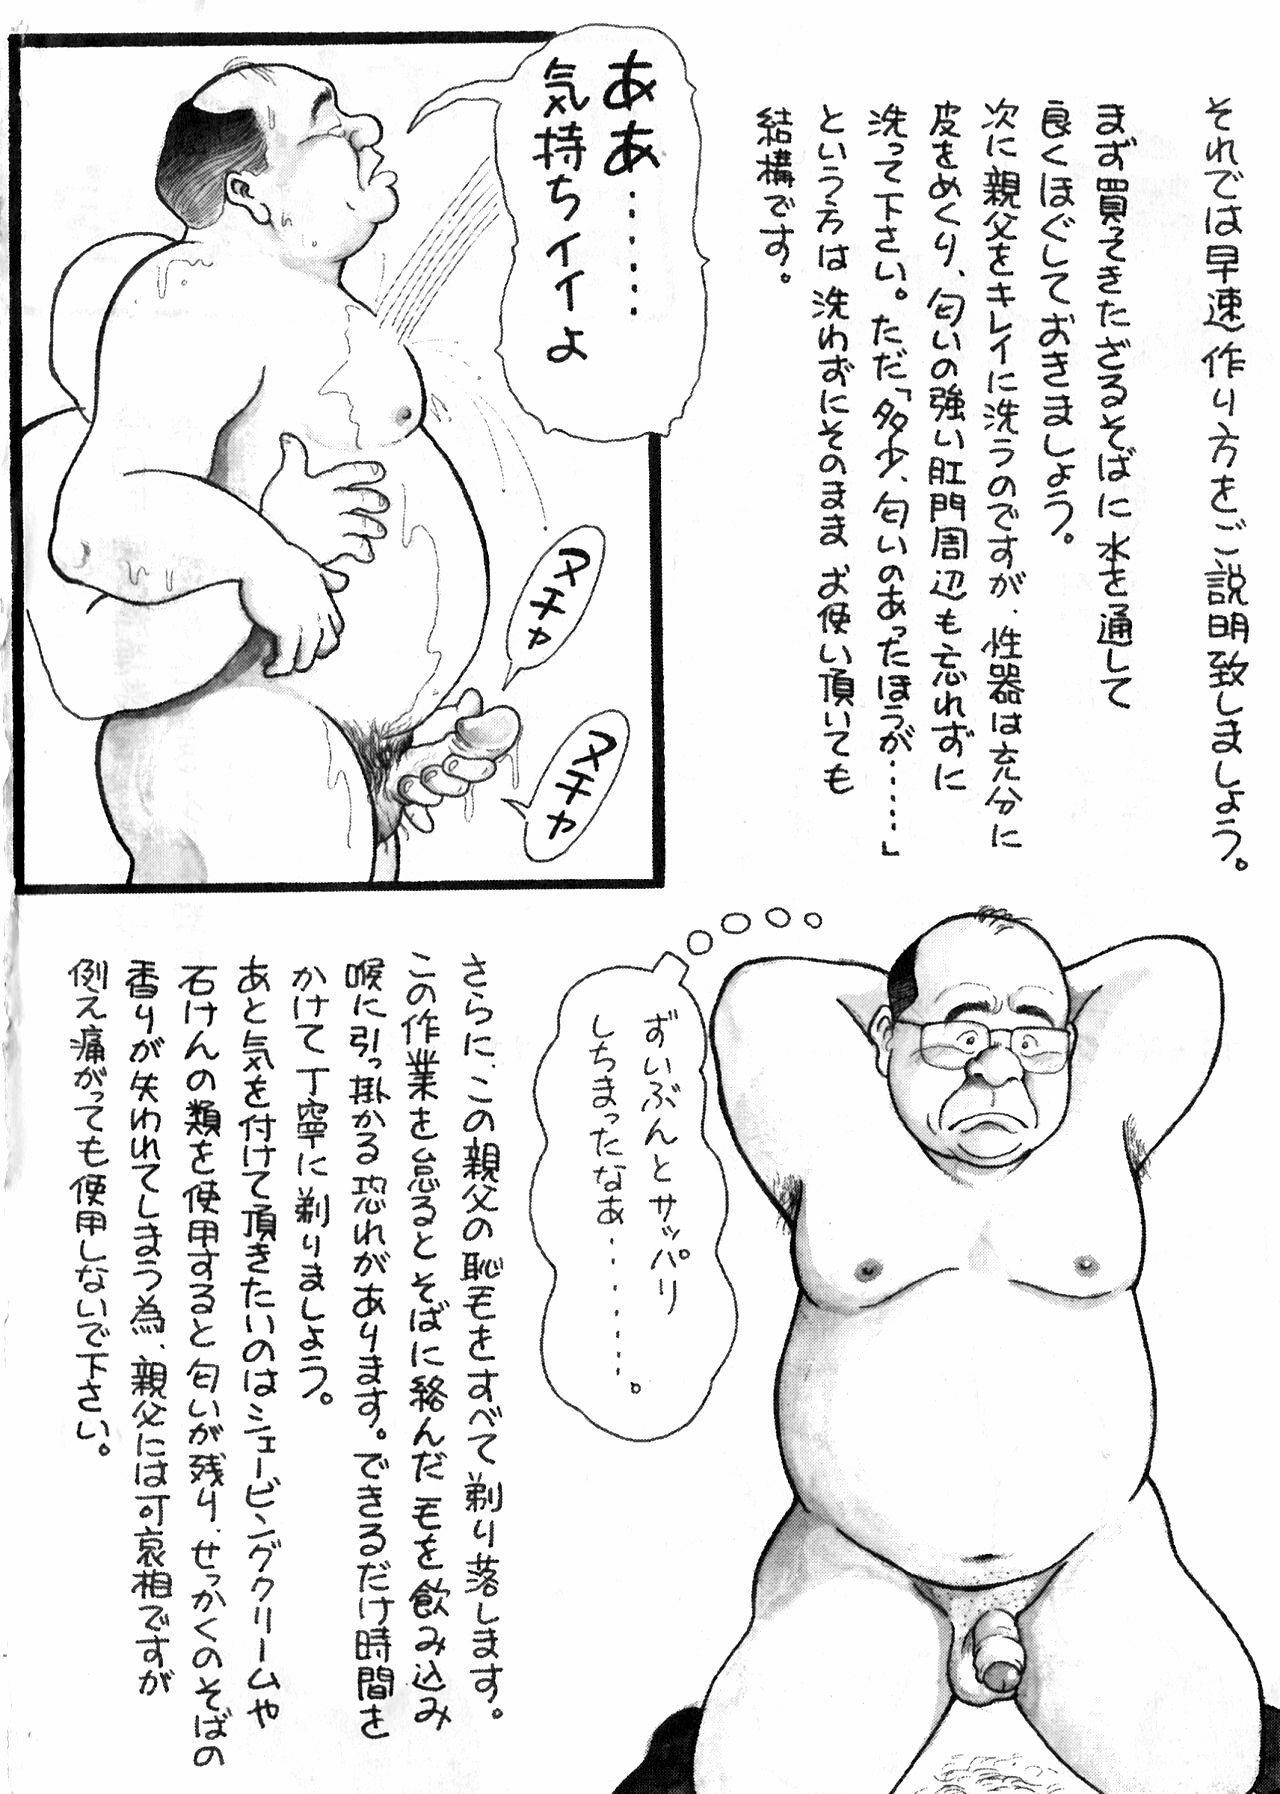 それでは早速作り方をご説明致しましょう。
まず買ってきたざるそばに水を通して
良くほぐしておきましょう。
次に親父をキレイに洗うのですが、性器は充分に
皮をめくり、匂いの強い肛門周辺も忘れずに
洗って下さい。ただ「多少、匂いのあったほうが……」
という方は洗わずにそのままお使い頂いても
結構です。
ああ……
気持ちイイよ
ヌチャ
ヌチャ
ずいぶんとサッパリ
しちまったなあ……。
さらに、この親父の恥毛をすべて剃り落します。
この作業を怠るとそばに絡んだ毛を飲み込み
喉に引っ掛かる恐れがあります。できるだけ時間を
かけて丁寧に剃りましょう。
あと気を付けて頂きたいのはシェービングクリームや
石けんの類を使用すると匂いが残り、せっかくのそばの
香りが失われてしまう為、親父には可哀相ですが
例え痛がっても使用しないで下さい。